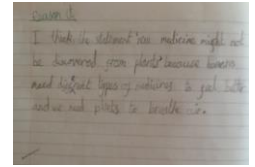 I think the statement "new medicine might not
be discovered from plants" because humans
need different types of medicines to get better
and we need plants to breathe in.